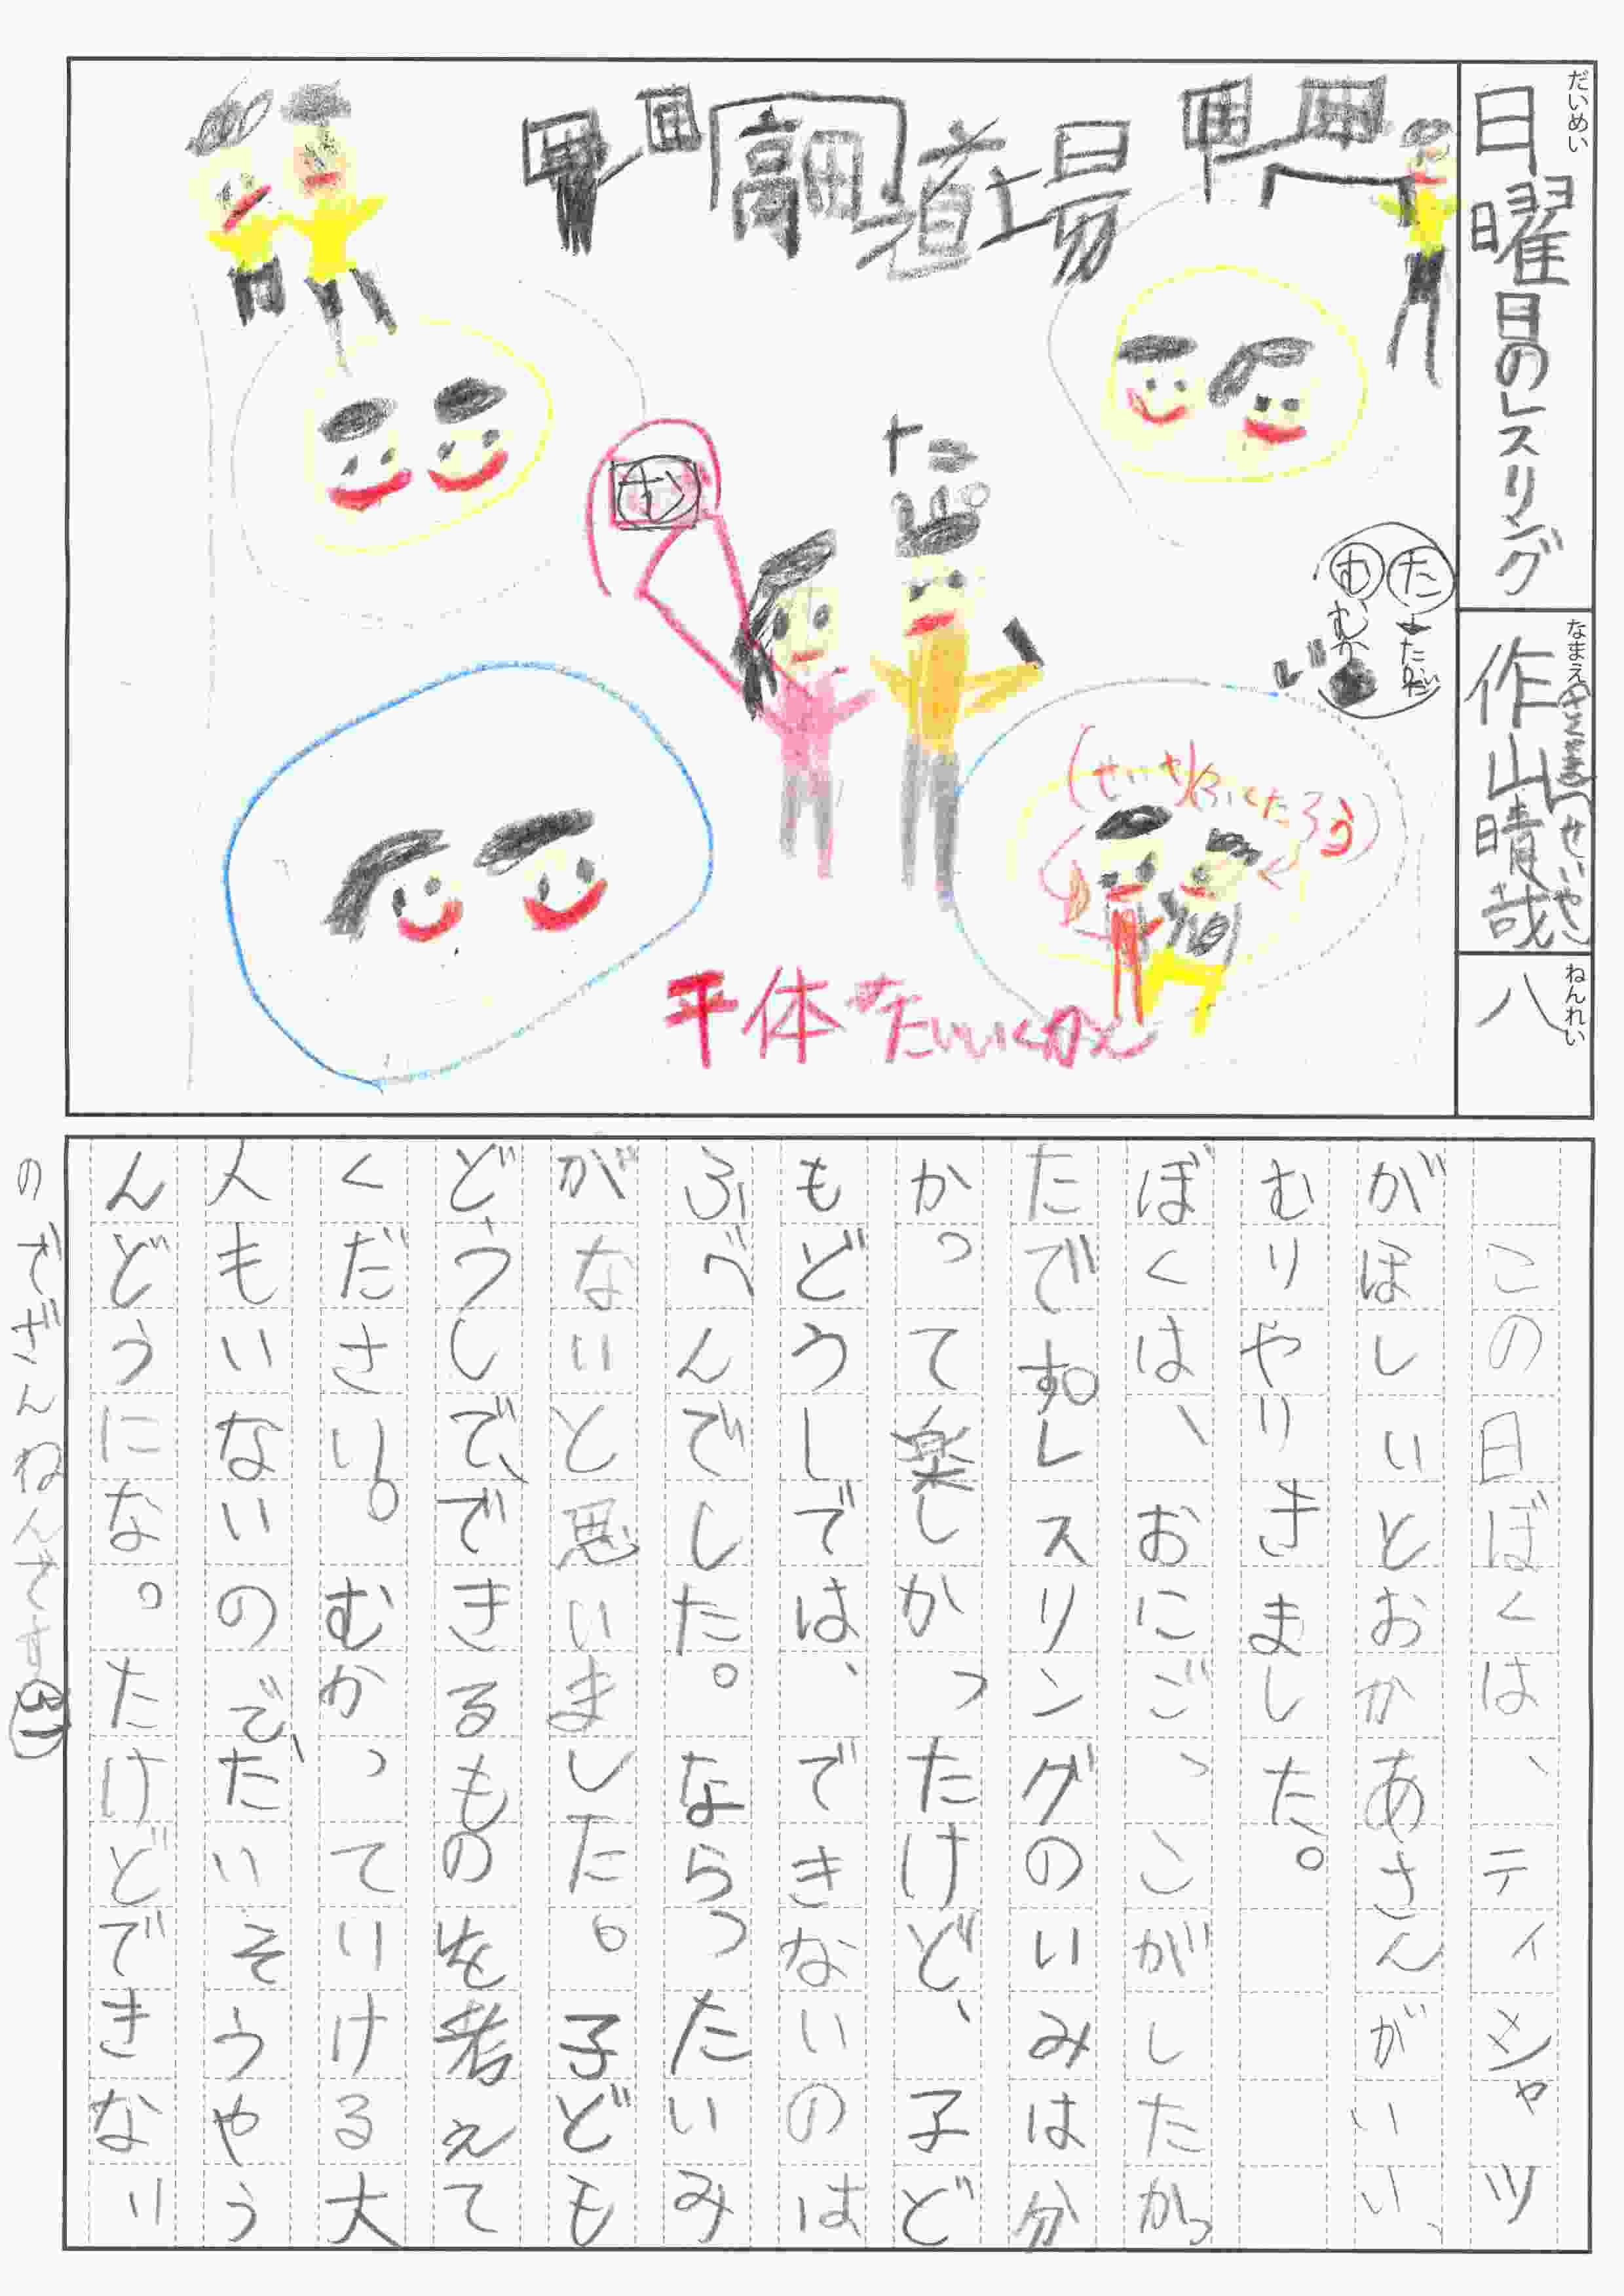 だいめい
日曜日のレスリング
なまえ
作山晴哉
せいや
ねんれい
八
高田道場
む
た
む
むか
(せいや)
ふくたろう
平体
たいいくかん
この日ぼくは、ティシャツ
がほしいとおかあさんがいい、
むりやりきました。
ぼくは、おにごっこがしたかっ
たです。レスリングのいみは分
かって楽しかったけど、子ど
もどうしでは、できないのは
ふべんでした。ならったいみ
がないと思いました。子ども
どうしで、できるものを考えて
ください。むかっていける大
人もいないので、たいそうやう
んどうにな。たけどできない
のでざんねんです